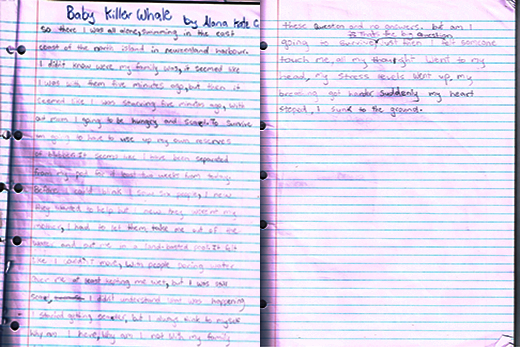 Baby Killer Whale by Alana Kate C
So there I was all alone, swimming in the east
coast of the north island in newzealand harbour.
I didn't know were my family was, it seemed like
I was with them five minutes ago, but then it
seemed like I was starving five minutes ago, with
out mum I going to be hungry and scared. To survive
am going to have to use up my own reserves
of blubber. it seems like I have been separated
from my pod for at least two weeks from today
Before I could blink I saw six people, I new
they wanted to help but I new they weren't my
mother, I had to let them take me out of the
water and put me in a land-based pool. It felt
like I couldn't move, with people pouring water
over me at least keeping me wet, but I was still
I didn't understand what was happening
I started getting but I always think to myself
Why am I here, Why am I not with my family
these question and no answers. but am I
Is That's the big question
going to survive. Just then I felt someone
touch me, all my thought went to my
head, my stress levels went up, my
breathing got harder suddenly my heart
stoped, I sunk to the ground.